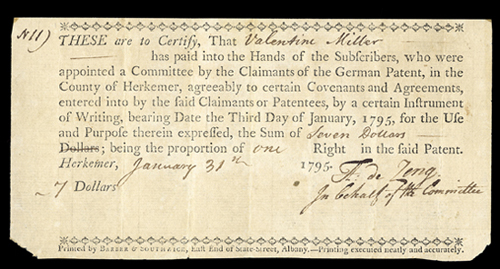 No 11)
THESE are to Certify, That Valentine Miller
has paid into the Hands of the Subſcribers, who were
appointed a Committee by the Claimants of the German Patent, in the
County of Herkemer, agreeably to certain Covenants and Agreements,
entered into by the ſaid Claimants or Patentees, by a certain Inſtrument
of Writing, bearing Date the Third Day of January, 1795, for the Uſe
and Purpoſe therein expreſſed, the Sum of Seven Dollars
Dollars; being the proportion of one Right in the ſaid Patent.
Herkemer, January 31st 1795.
7 Dollars
de Zeng
In behalf of the Committee
Printed by BARBER & SOUTHWICK, Eaſt End of State-Street, Albany.—Printing executed neatly and accurately.